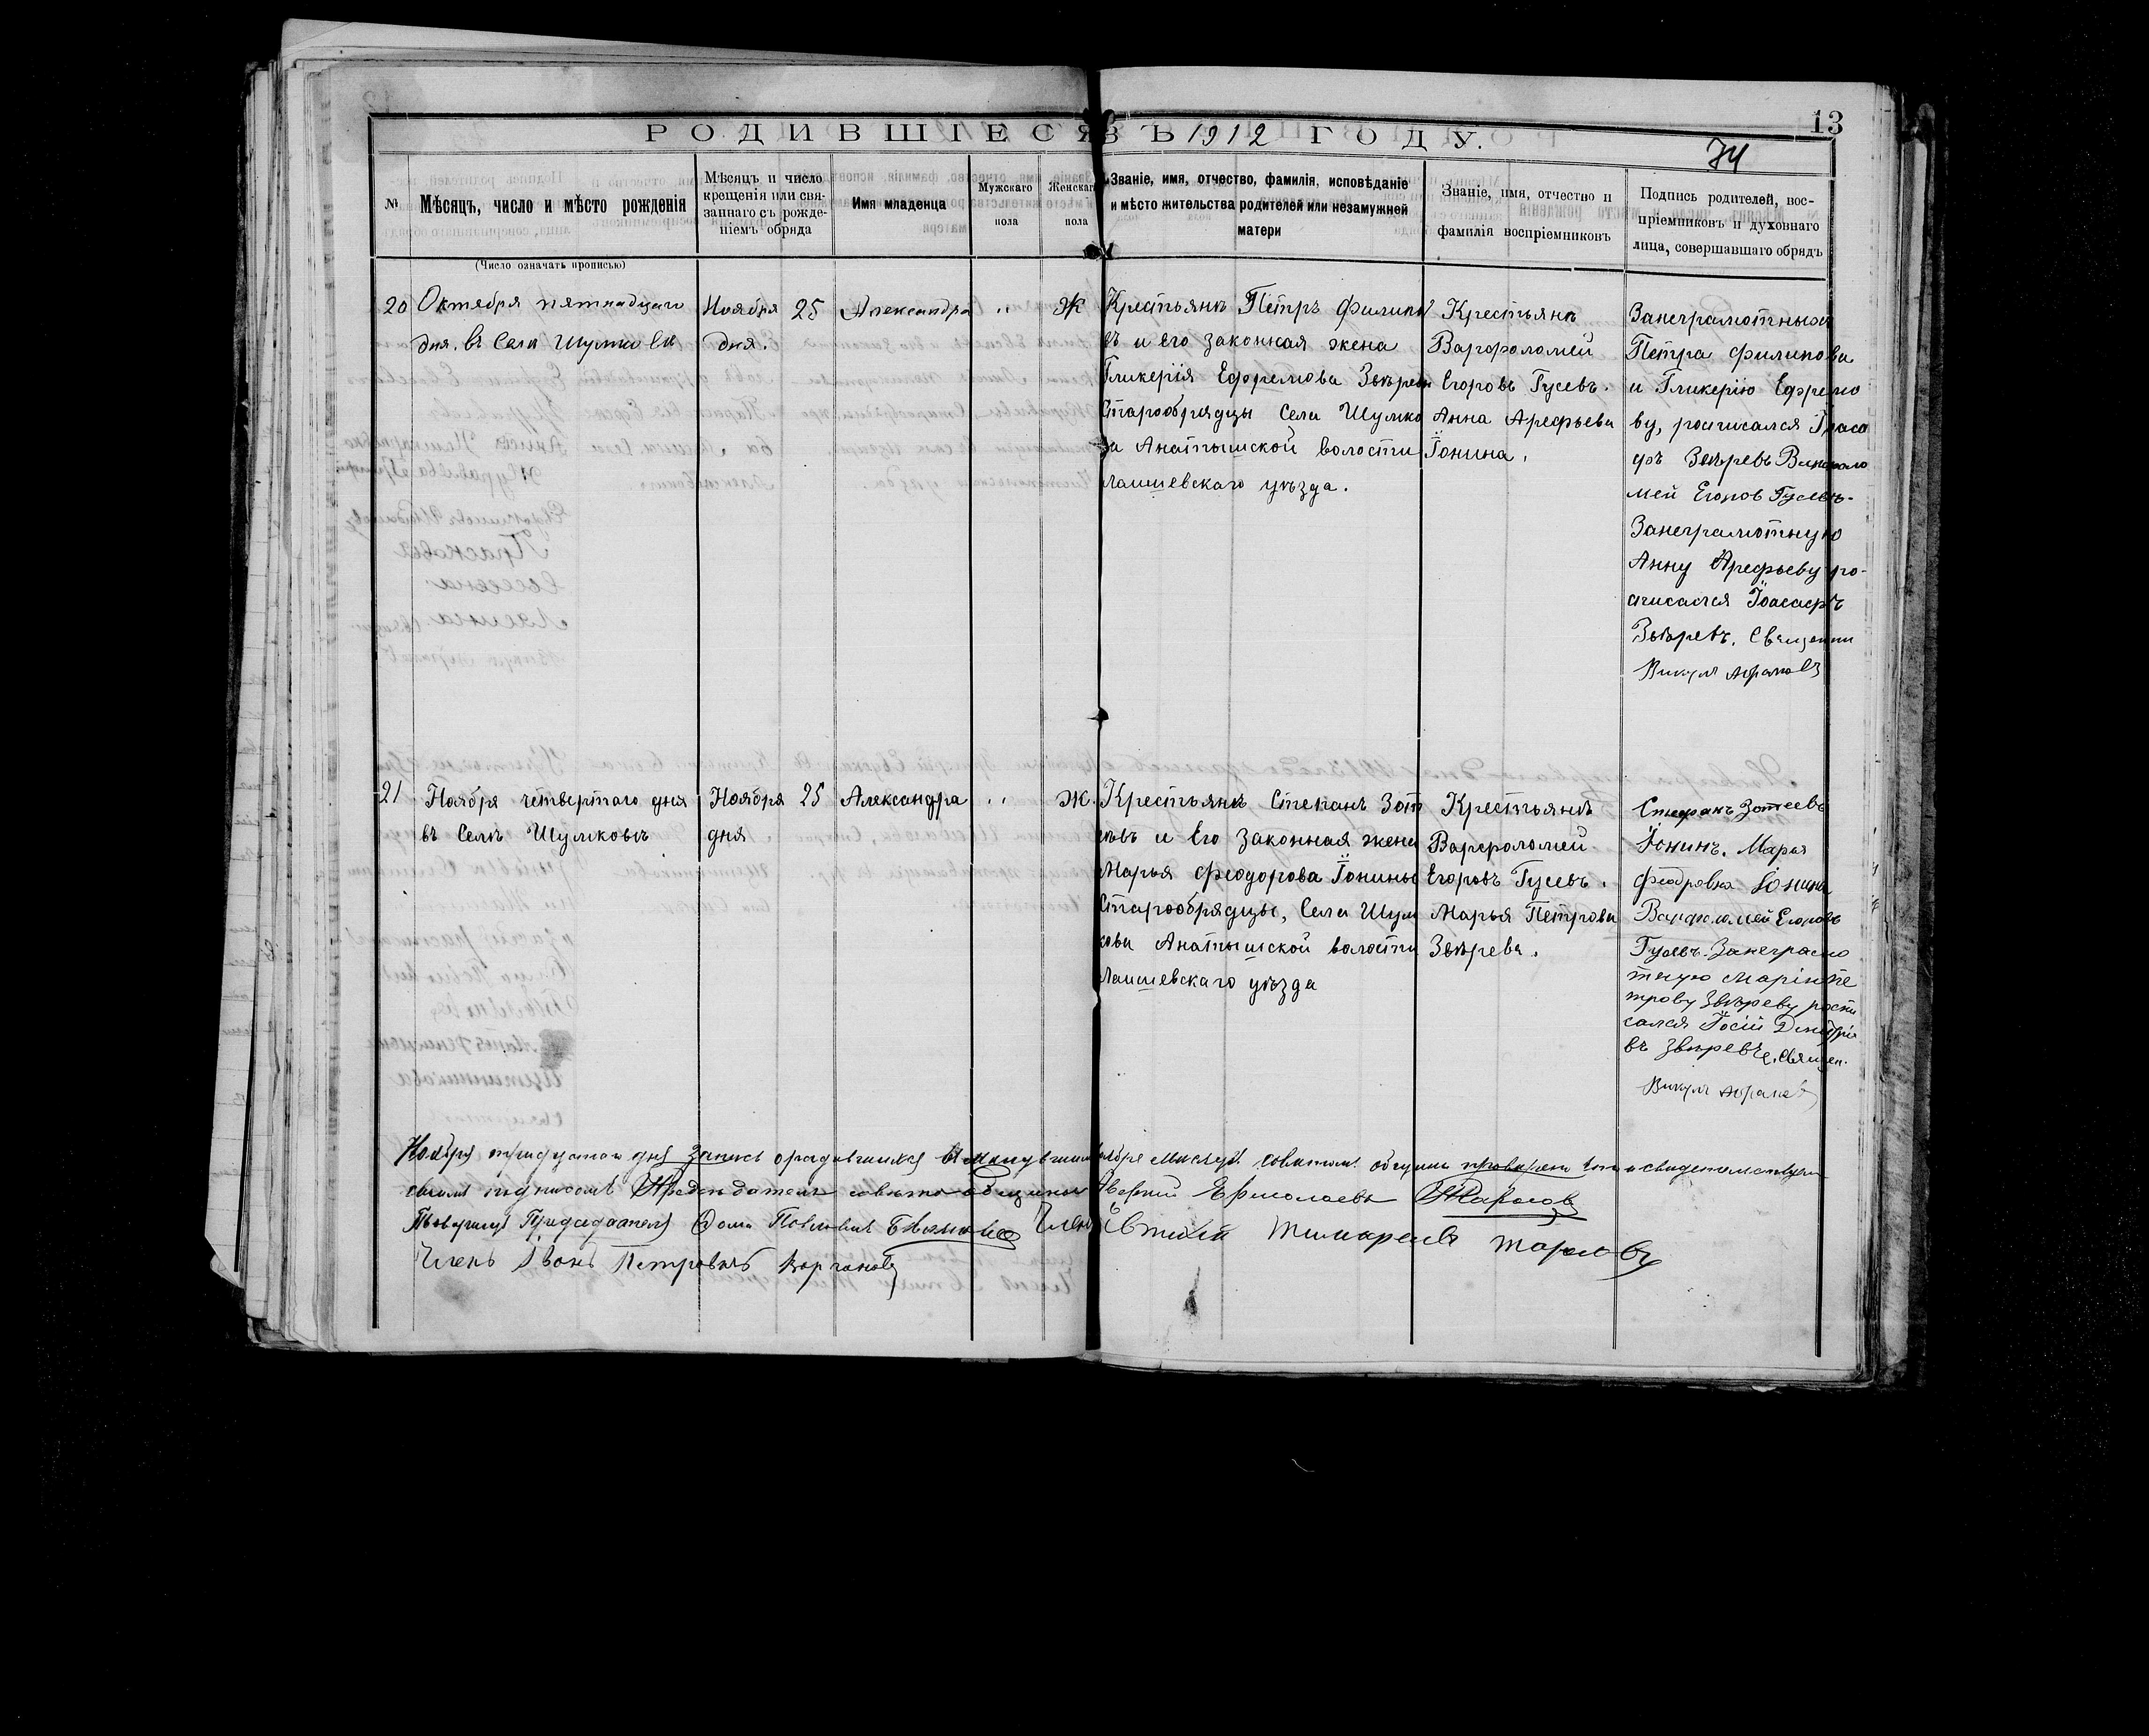 13
РОДИВШІЕСЯ ВЪ 1912 ГОДУ.
74
№
Мѣсяцъ, число и мѣсто рожденія
(Число означать прописью)
Мѣсяцъ и число
крещенія или свя-
заннаго съ рожде-
ніемъ обряда
Имя младенца
Мужскаго
пола
Женскаго
пола
Званіе, имя, отчество, фамилія, исповѣданіе
и мѣсто жительства родителей или незамужней
матери
Званіе, имя, отчество и
фамилія воспріемниковъ
Подпись родителей, вос-
пріемниковъ и духовнаго
лица, совершавшаго обрядъ
20
Октября пятнадцаго
дня. въ Селѣ Шумковѣ
Ноября 25
дня.
Александра
"
Ж
Крестьянѣ Петръ Филипо
въ и его законная жена
Гликерія Ефремова Звѣревы
Старообрядцы Села Шумко
ва Анатышской волости
Лаишевскаго уѣзда.
Крестьянѣ
Варфоломей
Егоровъ Гусевъ.
Анна Арефьева
Іонина.
Занеграмотныхъ
Петра Филипова
и Гликерію Ефремо
ву, росписался Іоаса
фъ Звѣревъ
мей Егоров Гусевъ.
Занеграмотную
Анну Арефьеву ро-
списался Іоасафъ
Звѣревъ. Священни
Викулъ
21
Ноября четвертаго дня
въ Селѣ Шумковѣ
Ноября 25
дня
Александра
"
Ж.
Крестьянѣ Степанъ Зот
ѣевъ и Его законная жена
Марья Феодорова Іонины
Старообрядцы, Села Шум
кова Анатышской волости
Лаишевскаго уѣзда
Крестьянѣ
Варфоломей
Егоровъ Гусевъ.
Марья Петрова
Звѣрева.
Стефанъ Зотеевъ
Іонинъ. Марья
Федровна Іонина
Варфоломей Егоровъ
Гусевъ. Занеграмо
тную Марію Пе
трову Звѣреву роспи
сался
въ Звѣревъ, Священ.
Викулъ
Ноября тридцатаго дня запись о родившихся в минувшем Ноябре месяце советом общины проверена что и свидетельствуем
своим подписом Председатель совета общины Аверкий Ермолаевъ
Товарищ Председателя Фома Павлович Члень Евтихий Тарасовъ
Члень Иван Петровичъ